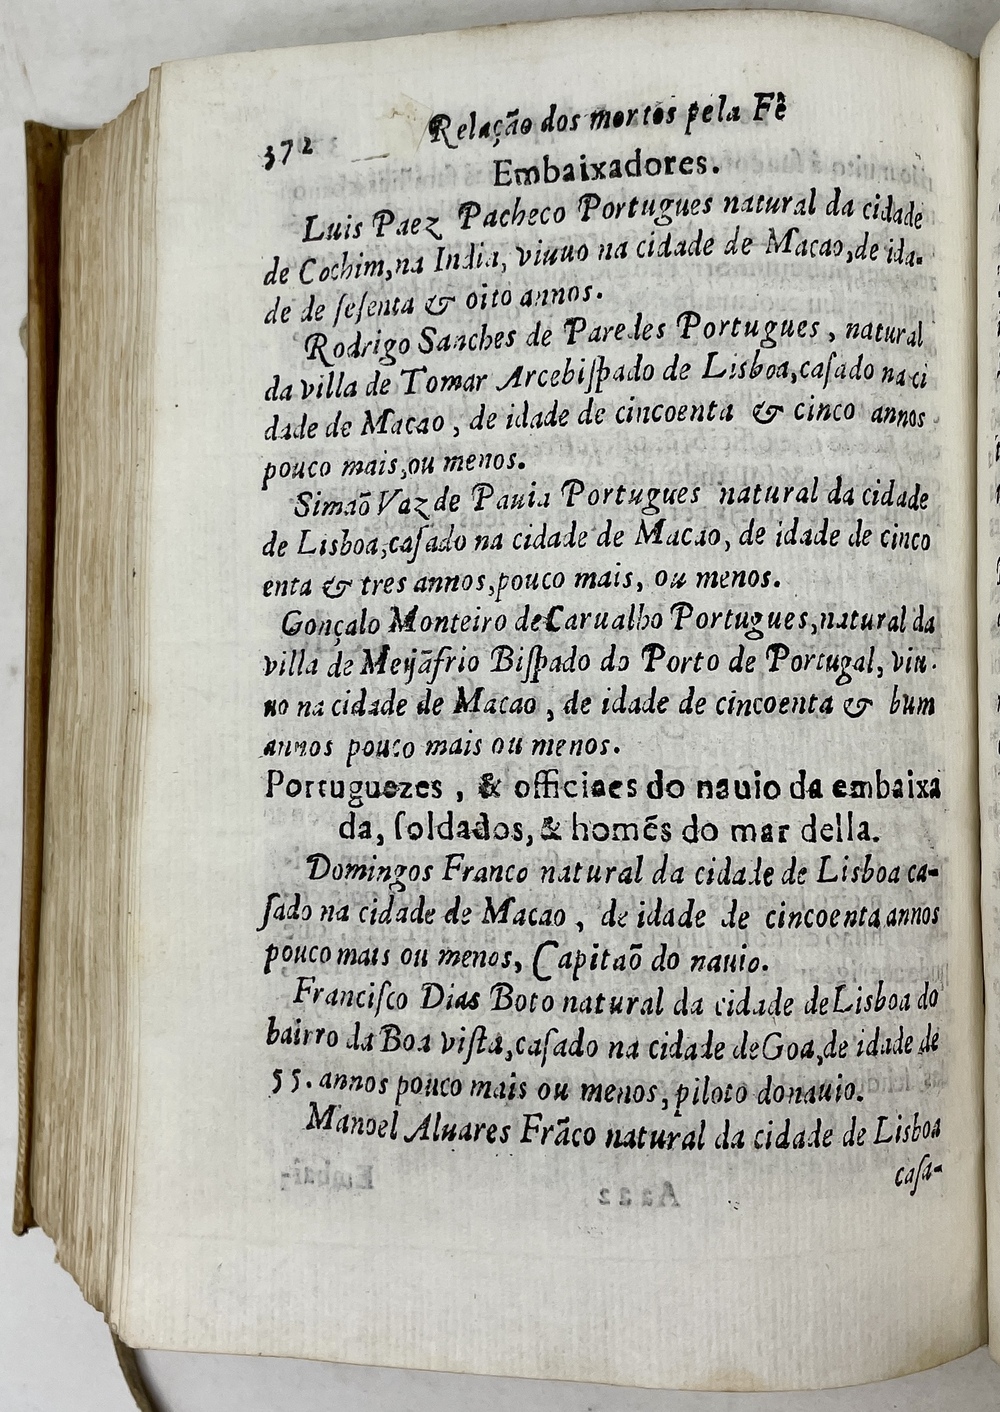 372 Relação dos mortos pela Fè
Embaixadores.
Luis Paez Pacheco Portugues natural da cidade
de Cochim,na India, viuuo na cidade de Macao,de ida-
de de ſeſenta & oito annos.
Rodrigo Sanches de Paredes Portugues, natural
da villa de Tomar Arcebiſpado de Lisboa,caſado na ci
dade de Macao, de idade de cincoenta & cinco annos
pouco mais,ou menos.
Simaõ Vaz de Pauia Portugues natural da cidade
de Lisboa,caſado na cidade de Macao, de idade de cinco
enta & tres annos,pouco mais, ou menos.
Gonçalo Monteiro de Carualho Portugues,natural da
villa de Meijāfrio Biſpado do Porto de Portugal, viu-
uo na cidade de Macao, de idade de cincoenta & hum
annos pouco mais ou menos.
Portuguezes, & officiaes do nauio da embaixa
da, ſoldados, & homẽs do mar della.
Domingos Franco natural da cidade de Lisboa ca-
ſado na cidade de Macao, de idade de cincoenta annos
pouco mais ou menos, Capitaõ do nauio.
Franciſco Dias Boto natural da cidade de Lisboa do
bairro da Boa viſta,caſado na cidade de Goa,de idade de
55. annos pouco mais ou menos, piloto do nauio.
Manoel Aluares Frāco natural da cidade de Lisboa
caſa-